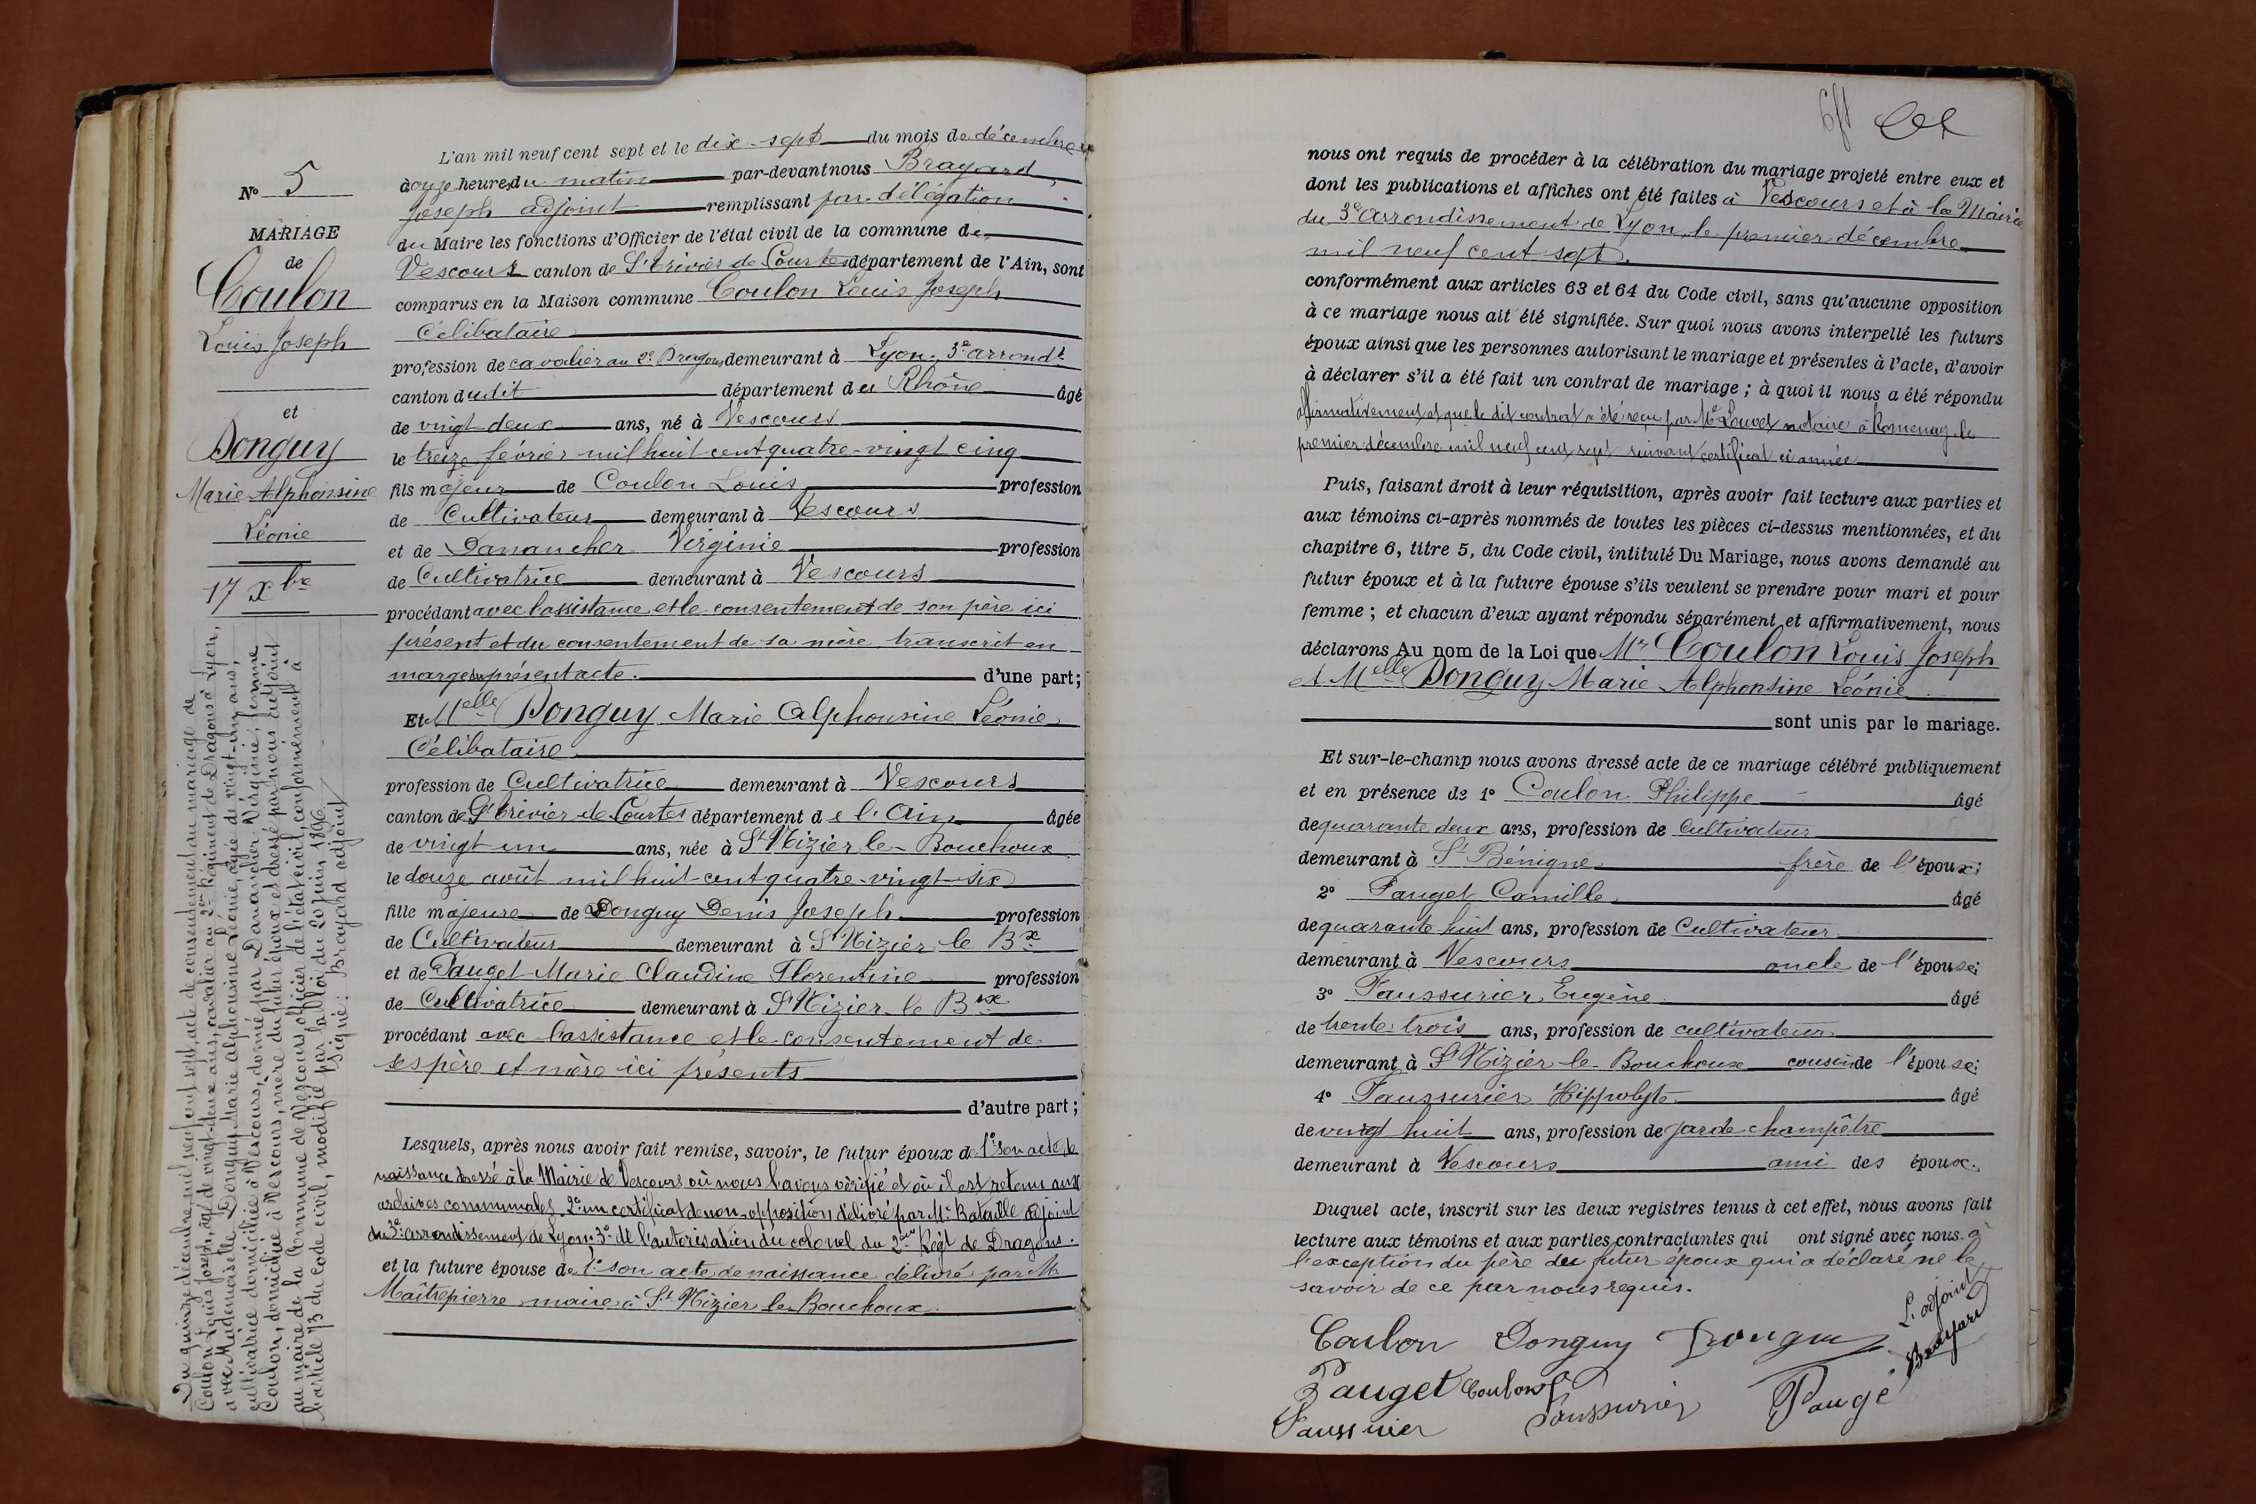 N° 5
MARIAGE
de
Coulon
Louis Joseph
et
Donguy
Marie Alphonsine
Léonie
17 xbre
Du quinze décembre mil neuf cent sept, acte de consentement au mariage de
Coulon Louis Joseph, âgé de vingt-deux ans, cavalier au 2me Régiment de Dragons à Lyon,
avec Mademoiselle Donguy Marie Alphonsine Léonie, âgée de vingt-un ans,
cultivatrice domiciliée à Vescours, donné par Danancher Virginie, femme
Coulon, domiciliée à Vescours, mère du futur époux et dressé par nous adjoint
au maire de la Commune de Vescours, officier de l'état civil, conformément à
l'article 73 du Code civil, modifié par la loi du 20 juin 1896.
Signé: Brayard adjoint
L'an mil neuf cent sept et le dix-sept du mois de décembre
à onze heures du matin par-devant nous Brayard
Joseph adjoint remplissant par délégation
du Maire les fonctions d'Officier de l'état civil de la commune de
Vescours canton de St Trivier de Courtes département de l'Ain, sont
comparus en la Maison commune Coulon Louis Joseph
Célibataire
profession de cavalier au 2e Dragons demeurant à Lyon, 3e arrondt
canton dudit département du Rhône âgé
de vingt deux ans, né à Vescours
le treize février mil huit cent quatre-vingt cinq
fils majeur de Coulon Louis profession
de Cultivateur demeurant à Vescours
et de Danancher Virginie profession
de Cultivatrice demeurant à Vescours
procédant avec l'assistance et le consentement de son père ici
présent et du consentement de sa mère transcrit en
marge du présent acte. d'une part;
Et Melle Donguy Marie Alphonsine Léonie
Célibataire
profession de Cultivatrice demeurant à Vescours
canton de St Trivier de Courtes département de l'Ain âgée
de vingt un ans, née à St Nizier le Bouchoux
le douze août mil huit cent quatre-vingt six
fille majeure de Donguy Denis Joseph profession
de Cultivateur demeurant à St Nizier le Bx
et de Pauget Marie Claudine Florentine profession
de Cultivatrice demeurant à St Nizier le Bux
procédant avec l'assistance et le consentement de
ses père et mère ici présents
d'autre part;
Lesquels, après nous avoir fait remise, savoir, le futur époux de 1° son acte de
naissance dressé à la Mairie de Vescours où nous l'avons vérifié et où il est retenu aux
archives communales. 2° un certificat de non-opposition délivré par Mr Bataille adjoint
du 3e arrondissement de Lyon. 3° de l'autorisation du colonel du 2me Régt de Dragons.
et la future épouse de 1° son acte de naissance délivré par Mr
Maîtrepierre maire à St Nizier le Bouchoux.
nous ont requis de procéder à la célébration du mariage projeté entre eux et
dont les publications et affiches ont été faites à Vescours et à la Mairie
du 3e arrondissement de Lyon, le premier décembre
mil neuf cent sept.
conformément aux articles 63 et 64 du Code civil, sans qu'aucune opposition
à ce mariage nous ait été signifiée. Sur quoi nous avons interpellé les futurs
époux ainsi que les personnes autorisant le mariage et présentes à l'acte, d'avoir
à déclarer s'il a été fait un contrat de mariage; à quoi il nous a été répondu
affirmativement et que le dit contrat a été reçu par Me Louvet notaire à Romenay le
premier décembre mil neuf cent sept suivant certificat ci annexé
Puis, faisant droit à leur réquisition, après avoir fait lecture aux parties et
aux témoins ci-après nommés de toutes les pièces ci-dessus mentionnées, et du
chapitre 6, titre 5, du Code civil, intitulé Du Mariage, nous avons demandé au
futur époux et à la future épouse s'ils veulent se prendre pour mari et pour
femme; et chacun d'eux ayant répondu séparément et affirmativement, nous
déclarons Au nom de la Loi que Mr Coulon Louis Joseph
et Melle Donguy Marie Alphonsine Léonie
sont unis par le mariage.
Et sur-le-champ nous avons dressé acte de ce mariage célébré publiquement
et en présence de 1° Coulon Philippe âgé
de quarante deux ans, profession de Cultivateur
demeurant à St Bénigne frère de l'époux;
2° Pauget Camille âgé
de quarante huit ans, profession de Cultivateur
demeurant à Vescours oncle de l'épouse;
3° Faussurier Eugène âgé
de trente trois ans, profession de cultivateur
demeurant à St Nizier le Bouchoux cousin de l'épouse;
4° Faussurier Hippolyte âgé
de vingt huit ans, profession de garde champêtre
demeurant à Vescours ami des époux.
Duquel acte, inscrit sur les deux registres tenus à cet effet, nous avons fait
lecture aux témoins et aux parties contractantes qui ont signé avec nous à
l'exception du père du futur époux qui a déclaré ne le
savoir de ce par nous requis.
L'adjoint
Brayard
Coulon Donguy Donguy
Pauget Coulon
Faussurier Faussurier Paugé